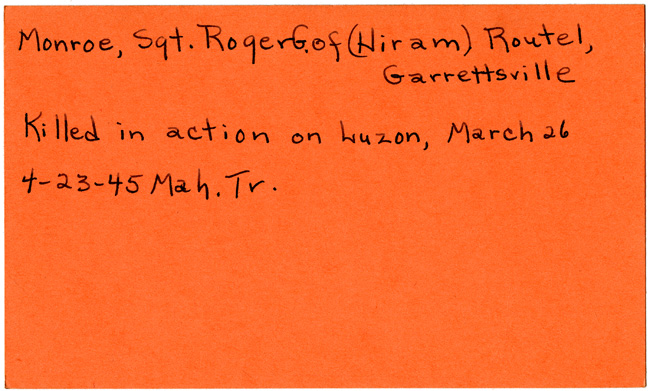 Monroe, Sgt. Roger G. of (Hiram) Route 1,
Garrettsville
Killed in action on Luzon, March 26
4-23-45 Mah. Tr.